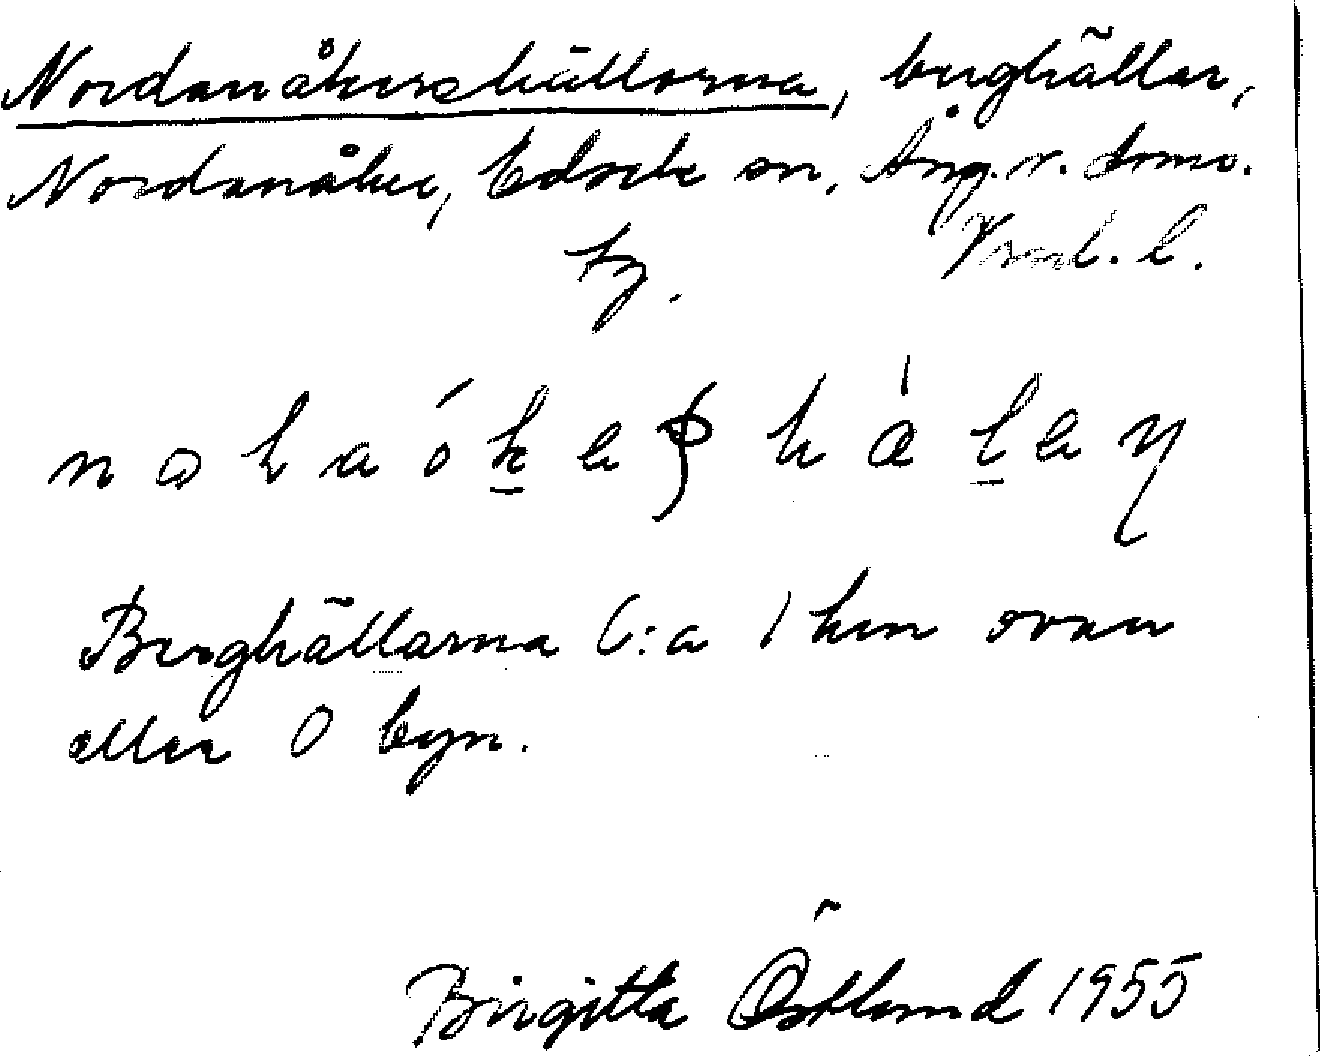 Nordanåkershällorna, berghällar,
Nordanåker, Edsele sn, Ång. v. doms.
tg. Vrnl. l.
Berghällarna C:a 1 km ovan
eller O byn.
Birgitta Östlund 1955